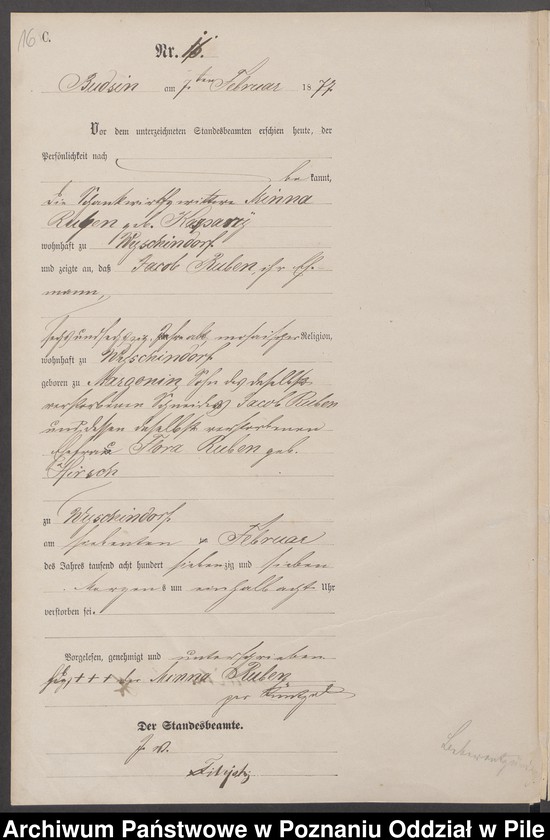 16 C.
Nr. 16.
Budsin am 7ten Februar 1877
Vor dem unterzeichneten Standesbeamten erschien heute, der
Persönlichkeit nach
bekannt,
die Schankwirthswittwe Minna
Ruben geb. Kaspary
wohnhaft zu Wyschindorf
und zeigte an, daß Jacob Ruben, ihr Ehe-
mann,
sechsundsechzig Jahre alt, mosaischer Religion,
wohnhaft zu Wyschindorf
geboren zu Margonin, Sohn des daselbst
verstorbenen Schneiders Jacob Ruben
und dessen daselbst verstorbenen
Ehefrau Flora Ruben geb.
Hirsch
zu Wyschindorf
am siebenten Februar
des Jahres tausend acht hundert siebenzig und sieben
Morgens um ein halb acht Uhr
verstorben sei.
Vorgelesen, genehmigt und unterschrieben
+++ der Minna Ruben
Der Standesbeamte.
J. V.
Archiwum Państwowe w Poznaniu Oddział w Pile